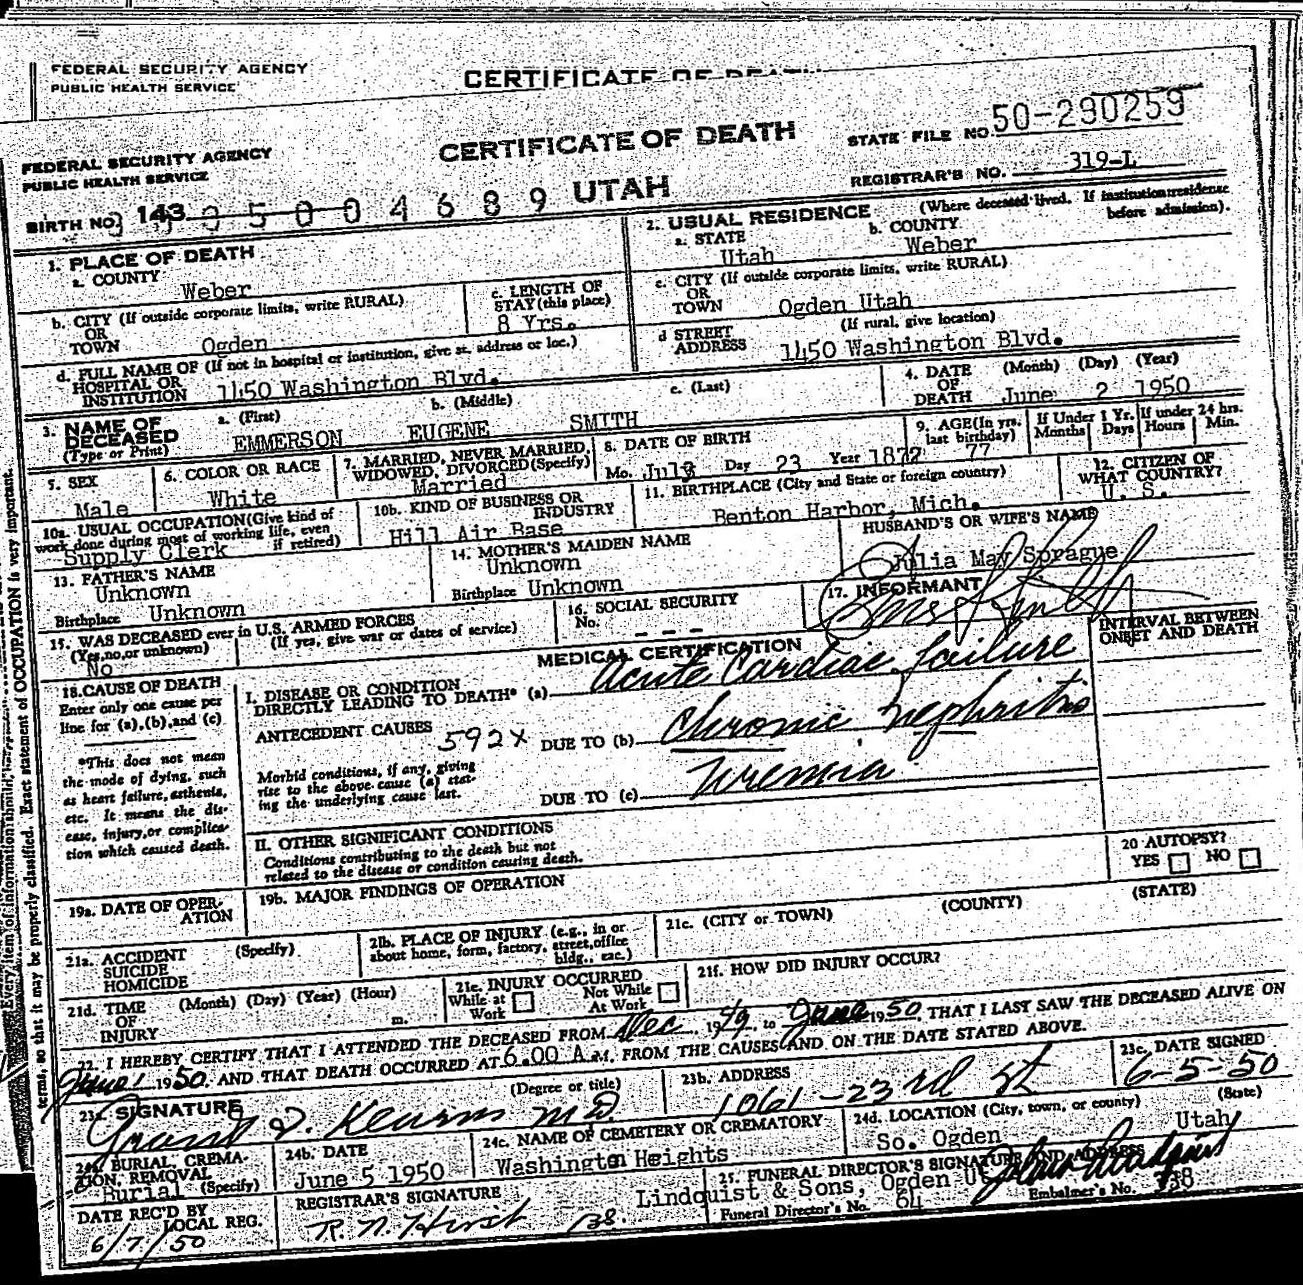 FEDERAL SECURITY AGENCY
PUBLIC HEALTH SERVICE
CERTIFICATE OF DEATH
FEDERAL SECURITY AGENCY
PUBLIC HEALTH SERVICE
CERTIFICATE OF DEATH
UTAH
STATE FILE NO. 50-290259
REGISTRAR'S NO. 319-L
BIRTH NO. 143 3 5 0 0 4 6 8 9
1. PLACE OF DEATH
a. COUNTY
Weber
b. CITY (If outside corporate limits, write RURAL)
OR
TOWN Ogden
c. LENGTH OF
STAY (this place)
8 Yrs.
d. FULL NAME OF (If not in hospital or institution, give st. address or loc.)
HOSPITAL OR
INSTITUTION 1450 Washington Blvd.
2. USUAL RESIDENCE (Where deceased lived. If institution: residence
before admission).
a. STATE b. COUNTY
Utah Weber
c. CITY (If outside corporate limits, write RURAL)
OR
TOWN Ogden Utah
d STREET (If rural, give location)
ADDRESS 1450 Washington Blvd.
3. NAME OF
DECEASED
(Type or Print)
a. (First) b. (Middle) c. (Last)
EMMERSON EUGENE SMITH
4. DATE (Month) (Day) (Year)
OF
DEATH June 2 1950
5. SEX
Male
6. COLOR OR RACE
White
7. MARRIED, NEVER MARRIED,
WIDOWED, DIVORCED (Specify)
Married
8. DATE OF BIRTH
Mo. July Day 23 Year 1872
9. AGE (In yrs.
last birthday)
77
If Under 1 Yr.
Months Days
If under 24 hrs.
Hours Min.
10a. USUAL OCCUPATION (Give kind of
work done during most of working life, even
if retired)
Supply Clerk
10b. KIND OF BUSINESS OR
INDUSTRY
Hill Air Base
11. BIRTHPLACE (City and State or foreign country)
Benton Harbor, Mich.
12. CITIZEN OF
WHAT COUNTRY?
U. S.
13. FATHER'S NAME
Unknown
Birthplace Unknown
14. MOTHER'S MAIDEN NAME
Unknown
Birthplace Unknown
HUSBAND'S OR WIFE'S NAME
Julia May Sprague
15. WAS DECEASED ever in U.S. ARMED FORCES
(Yes, no, or unknown) (If yes, give war or dates of service)
No
16. SOCIAL SECURITY
No. - - -
17. INFORMANT
MEDICAL CERTIFICATION
INTERVAL BETWEEN
ONSET AND DEATH
18. CAUSE OF DEATH
Enter only one cause per
line for (a), (b), and (c)
*This does not mean
the mode of dying, such
as heart failure, asthenia,
etc. It means the dis-
ease, injury, or complica-
tion which caused death.
I. DISEASE OR CONDITION
DIRECTLY LEADING TO DEATH* (a) Acute Cardiac failure
ANTECEDENT CAUSES 592X DUE TO (b) Chronic Nephritis
Morbid conditions, if any, giving
rise to the above cause (a) stat-
ing the underlying cause last.
DUE TO (c) Uremia
II. OTHER SIGNIFICANT CONDITIONS
Conditions contributing to the death but not
related to the disease or condition causing death.
20 AUTOPSY?
YES NO
19a. DATE OF OPER-
ATION
19b. MAJOR FINDINGS OF OPERATION
21a. ACCIDENT (Specify)
SUICIDE
HOMICIDE
21b. PLACE OF INJURY (e.g., in or
about home, form, factory, street, office
bldg., etc.)
21c. (CITY or TOWN) (COUNTY) (STATE)
21d. TIME (Month) (Day) (Year) (Hour)
OF
INJURY m.
21e. INJURY OCCURRED
While at Work Not While At Work
21f. HOW DID INJURY OCCUR?
22. I HEREBY CERTIFY THAT I ATTENDED THE DECEASED FROM Dec 1949, to June 1950, THAT I LAST SAW THE DECEASED ALIVE ON
June 1 1950 AND THAT DEATH OCCURRED AT 6.00 A.M. FROM THE CAUSES AND ON THE DATE STATED ABOVE.
23a. SIGNATURE (Degree or title)
Grant J. Kearns MD
23b. ADDRESS
1061-23rd st
23c. DATE SIGNED
6-5-50
24a. BURIAL, CREMA-
TION, REMOVAL
Burial (Specify)
24b. DATE
June 5 1950
24c. NAME OF CEMETERY OR CREMATORY
Washington Heights
24d. LOCATION (City, town, or county) (State)
So. Ogden Utah
DATE REC'D BY
LOCAL REG.
6/7/50
REGISTRAR'S SIGNATURE
R. N. Hirst
25. FUNERAL DIRECTOR'S SIGNATURE AND ADDRESS
Lindquist & Sons, Ogden Ut
Funeral Director's No. 64 Embalmer's No. 338
Every item of information
terms, so that it may be properly classified. Exact statement of OCCUPATION is very important.